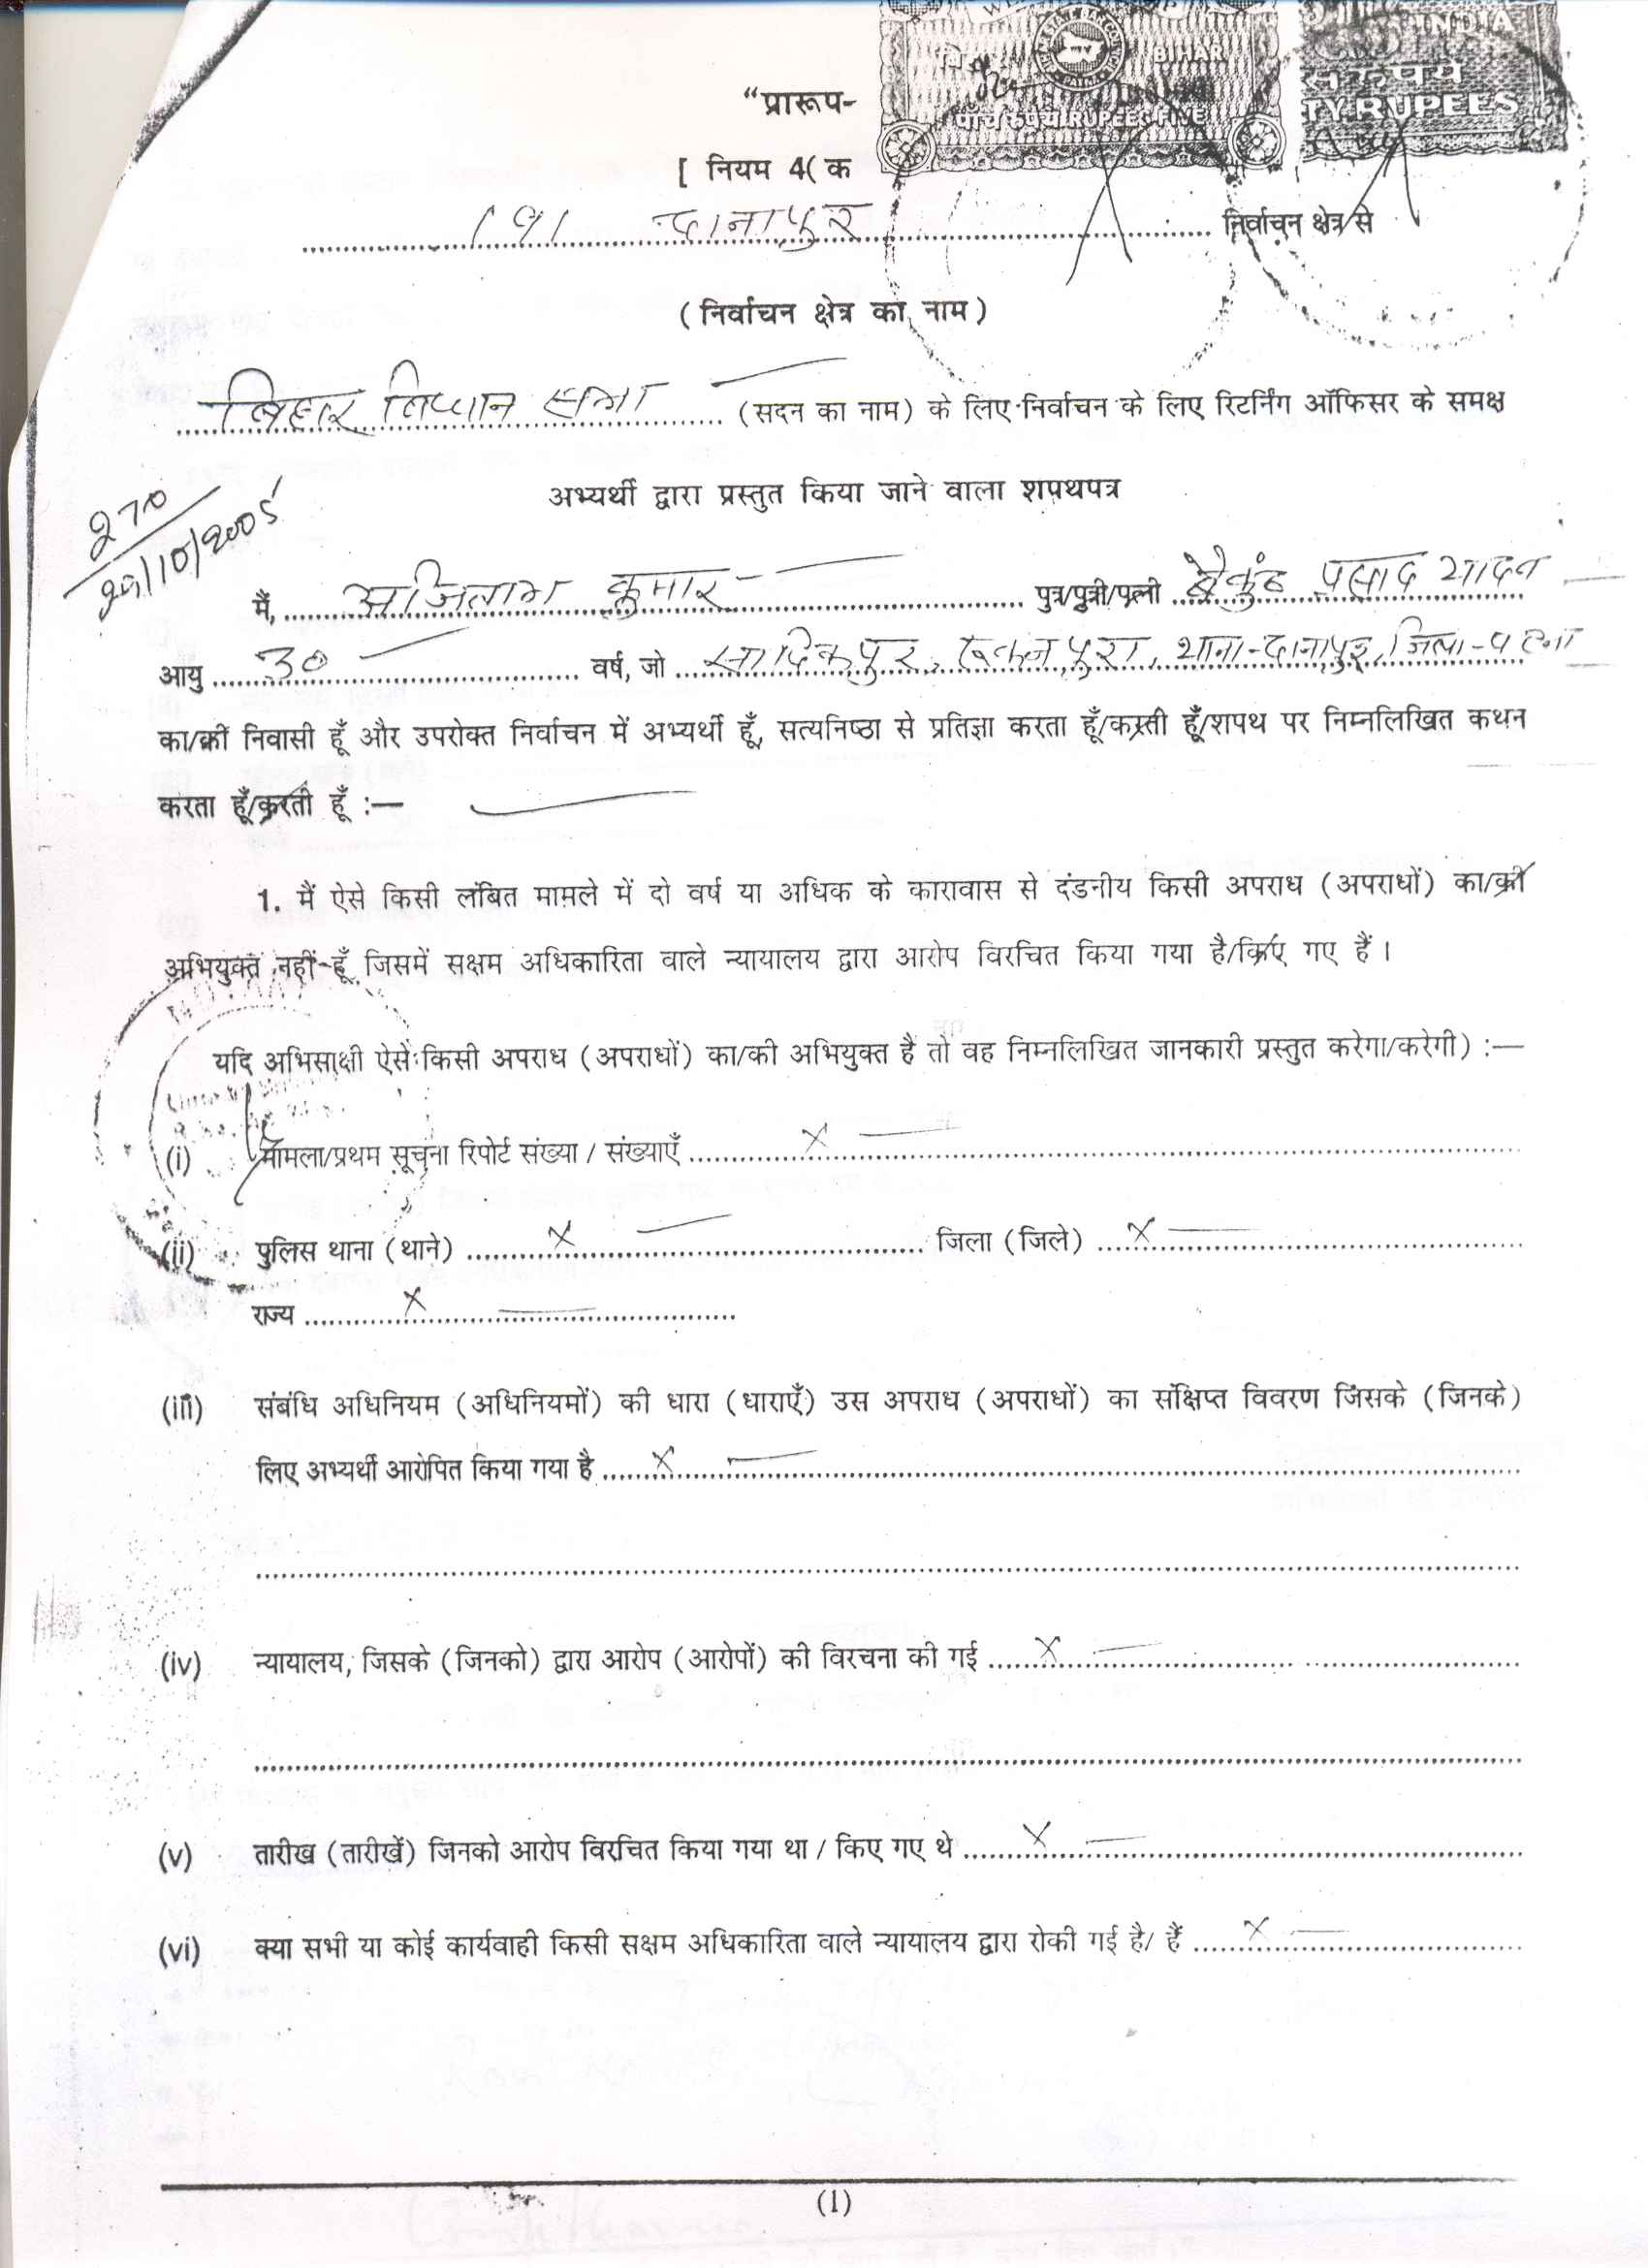 बिहार BIHAR INDIA
पाँच रुपये RUPEES FIVE
रुपये
TY RUPEES
“प्रारूप-
[ नियम 4( क
191 दानापुर निर्वाचन क्षेत्र से
(निर्वाचन क्षेत्र का नाम)
बिहार विधान सभा (सदन का नाम) के लिए निर्वाचन के लिए रिटर्निंग ऑफिसर के समक्ष
अभ्यर्थी द्वारा प्रस्तुत किया जाने वाला शपथपत्र
270
/10/2005
मैं, अजिताभ कुमार पुत्र/पुत्री/पत्नी बैकुंठ प्रसाद यादव
आयु 30 वर्ष, जो सादिकपुर, थाना-दानापुर, जिला-पटना
का/की निवासी हूँ और उपरोक्त निर्वाचन में अभ्यर्थी हूँ, सत्यनिष्ठा से प्रतिज्ञा करता हूँ/करती हूँ/शपथ पर निम्नलिखित कथन
करता हूँ/करती हूँ :—
1. मैं ऐसे किसी लंबित मामले में दो वर्ष या अधिक के कारावास से दंडनीय किसी अपराध (अपराधों) का/की
अभियुक्त नहीं हूँ, जिसमें सक्षम अधिकारिता वाले न्यायालय द्वारा आरोप विरचित किया गया है/किए गए हैं।
यदि अभिसाक्षी ऐसे किसी अपराध (अपराधों) का/की अभियुक्त है तो वह निम्नलिखित जानकारी प्रस्तुत करेगा/करेगी) :—
(i) मामला/प्रथम सूचना रिपोर्ट संख्या / संख्याएँ X
(ii) पुलिस थाना (थाने) X जिला (जिले) X
राज्य X
(iii) संबंधि अधिनियम (अधिनियमों) की धारा (धाराएँ) उस अपराध (अपराधों) का संक्षिप्त विवरण जिसके (जिनके)
लिए अभ्यर्थी आरोपित किया गया है X
(iv) न्यायालय, जिसके (जिनको) द्वारा आरोप (आरोपों) की विरचना की गई X
(v) तारीख (तारीखें) जिनको आरोप विरचित किया गया था / किए गए थे X
(vi) क्या सभी या कोई कार्यवाही किसी सक्षम अधिकारिता वाले न्यायालय द्वारा रोकी गई है/ हैं X
(1)